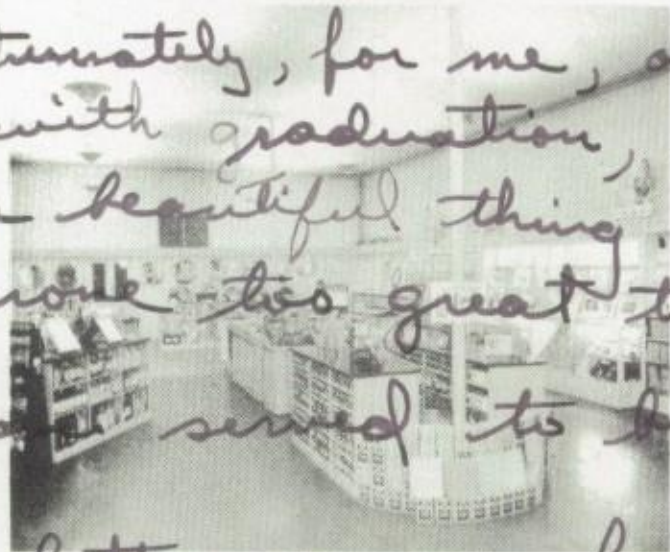 tunately, for me,
with graduation,
beautiful thing
too great
served to